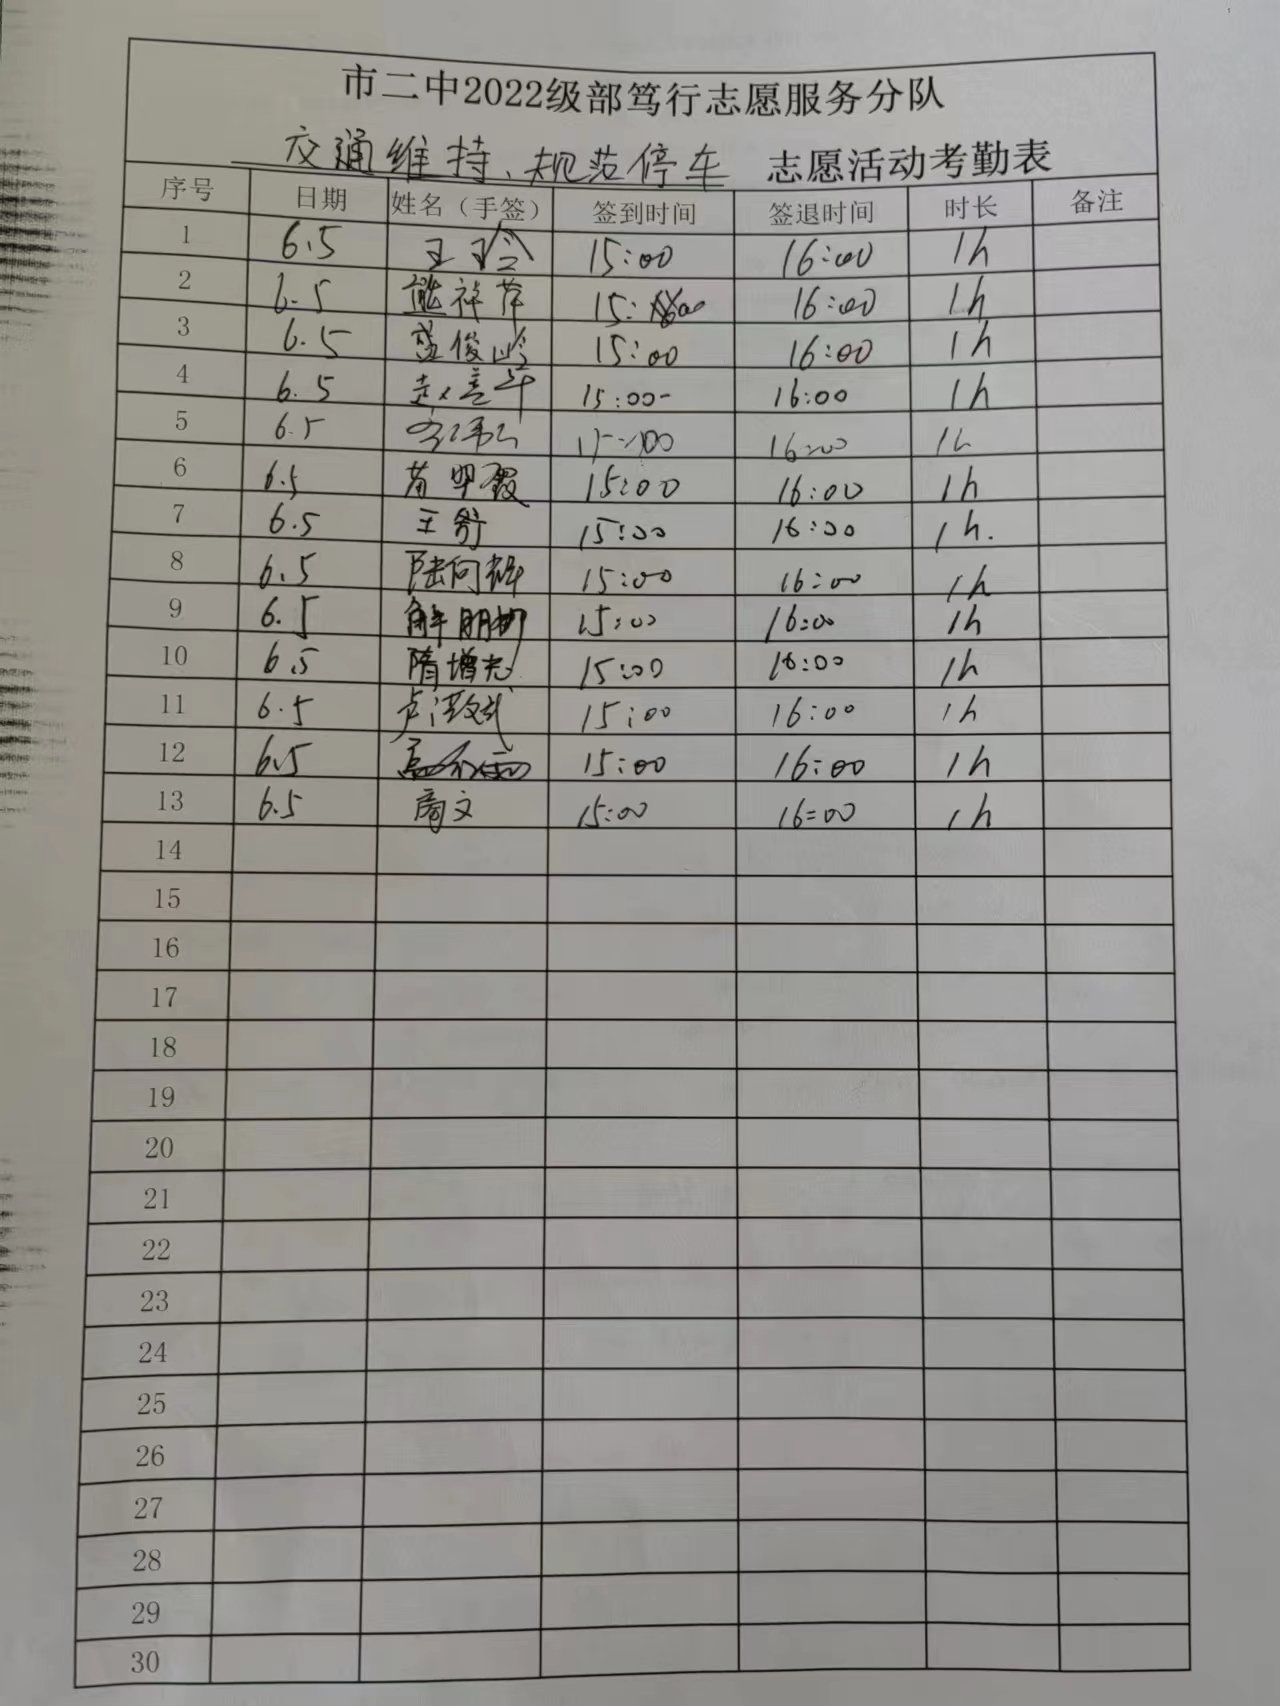 市二中2022级部笃行志愿服务分队
交通维持、规范停车 志愿活动考勤表
序号 日期 姓名（手签） 签到时间 签退时间 时长 备注
1 6.5 王玲 15:00 16:00 1h
2 6.5 熊祥萍 15:00 16:00 1h
3 6.5 盛俊岭 15:00 16:00 1h
4 6.5 15:00 16:00 1h
5 6.5 16:00 1h
6 6.5 15:00 16:00 1h
7 6.5 王舒 15:00 16:00 1h.
8 6.5 陆向辉 15:00 16:00 1h
9 6.5 解朋 15:00 16:00 1h
10 6.5 隋增志 15:00 16:00 1h
11 6.5 卢洪斌 15:00 16:00 1h
12 6.5 15:00 16:00 1h
13 6.5 商文 15:00 16:00 1h
14
15
16
17
18
19
20
21
22
23
24
25
26
27
28
29
30